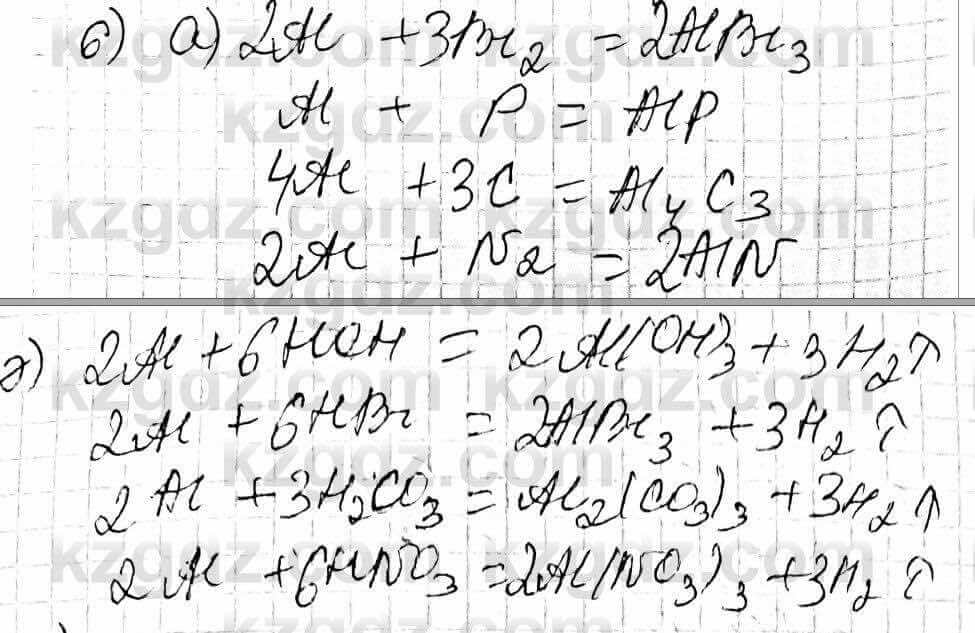 б) а) 2Al + 3Br₂ = 2AlBr₃
Al + P = AlP
4Al + 3C = Al₄C₃
2Al + N₂ = 2AlN
ә) 2Al + 6HOH = 2Al(OH)₃ + 3H₂↑
2Al + 6HBr = 2AlBr₃ + 3H₂↑
2Al + 3H₂CO₃ = Al₂(CO₃)₃ + 3H₂↑
2Al + 6HNO₃ = 2Al(NO₃)₃ + 3H₂↑
kzgdz.com